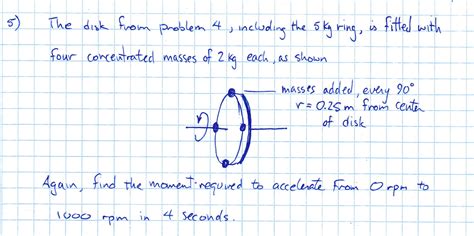 5) The disk from problem 4, including the 5 kg ring, is fitted with
four concentrated masses of 2 kg each, as shown
masses added, every 90°
r = 0.25 m from center
of disk
Again, find the moment required to accelerate from 0 rpm to
1000 rpm in 4 seconds.